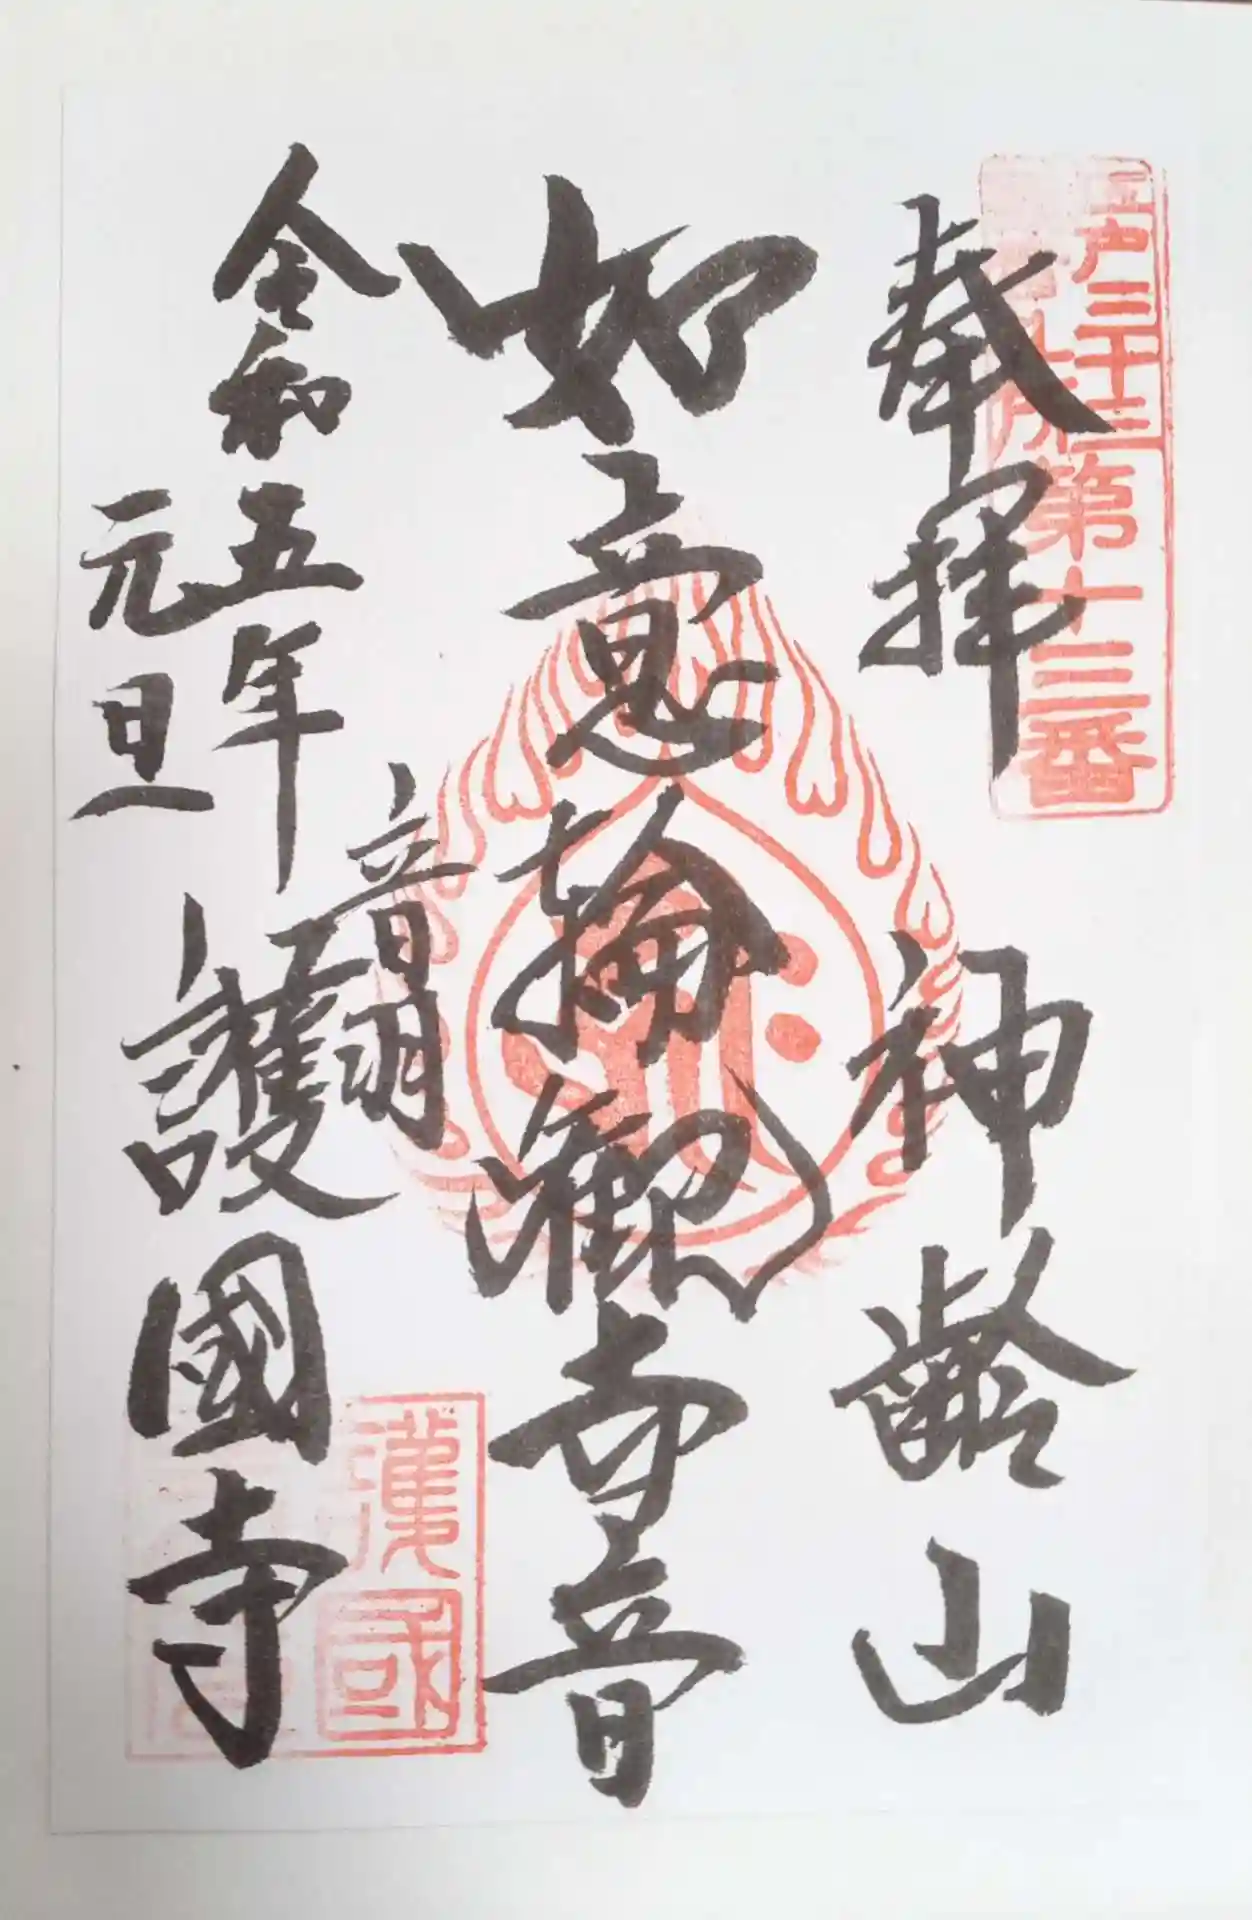 江戸三十三
札所第十三番
奉拝
神齢山
如意輪観世音
令和五年
元旦
音羽
護國寺
護國